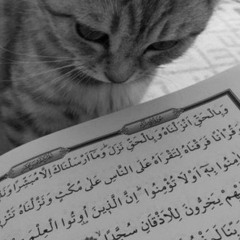 وَبِالْحَقِّ اَنْزَلْنَاهُ وَبِالْحَقِّ نَزَلَ وَمَا اَرْسَلْنَاكَ اِلَّا مُبَشِّرًا
وَقُرْاٰنًا فَرَقْنَاهُ لِتَقْرَاَهُ عَلَى النَّاسِ عَلٰى مُكْثٍ وَنَزَّلْنَاهُ
اٰمِنُوا بِهٖٓ اَوْ لَا تُؤْمِنُوا اِنَّ الَّذِينَ اُوتُوا الْعِلْمَ
يَخِرُّونَ لِلْاَذْقَانِ سُجَّدًا